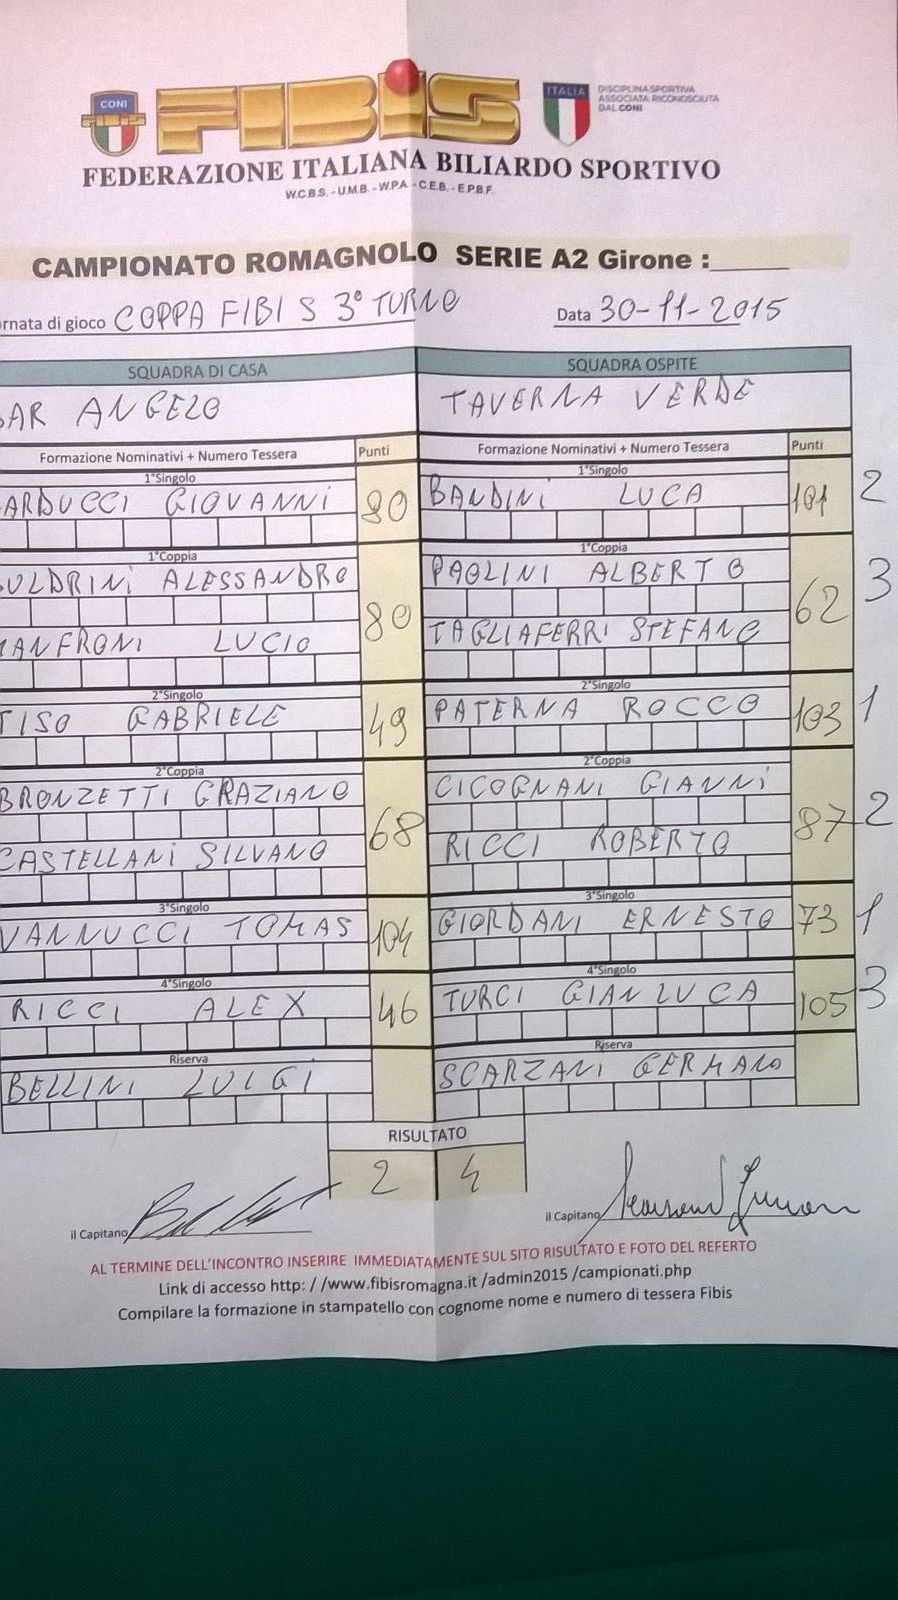 CONI
FIBIS
FIBiS
ITALIA
DISCIPLINA SPORTIVA
ASSOCIATA RICONOSCIUTA
DAL CONI
FEDERAZIONE ITALIANA BILIARDO SPORTIVO
W.C.B.S. - U.M.B. - W.P.A. - C.E.B. - E.P.B.F.
CAMPIONATO ROMAGNOLO SERIE A2 Girone :______
rnata di gioco COPPA FIBIS 3° TURNO Data 30-11-2015
SQUADRA DI CASA SQUADRA OSPITE
BAR ANGELO TAVERNA VERDE
Formazione Nominativi + Numero Tessera Punti Formazione Nominativi + Numero Tessera Punti
1°Singolo 1°Singolo
ARDUCCI GIOVANNI 80 BANDINI LUCA 101 2
1°Coppia 1°Coppia
ULDRINI ALESSANDRO 80 PAOLINI ALBERTO 62 3
MANFRONI LUCIO TAGLIAFERRI STEFANO
2°Singolo 2°Singolo
TISO GABRIELE 49 PATERNA ROCCO 103 1
2°Coppia 2°Coppia
BRONZETTI GRAZIANO 68 CICOGNANI GIANNI 87 2
CASTELLANI SILVANO RICCI ROBERTO
3°Singolo 3°Singolo
VANNUCCI TOMAS 104 GIORDANI ERNESTO 73 1
4°Singolo 4°Singolo
RICCI ALEX 46 TURCI GIANLUCA 105 3
Riserva Riserva
BELLINI LUIGI SCARZANI GERMANO
RISULTATO
2 4
il Capitano il Capitano
AL TERMINE DELL'INCONTRO INSERIRE IMMEDIATAMENTE SUL SITO RISULTATO E FOTO DEL REFERTO
Link di accesso http: / /www.fibisromagna.it /admin2015 /campionati.php
Compilare la formazione in stampatello con cognome nome e numero di tessera Fibis